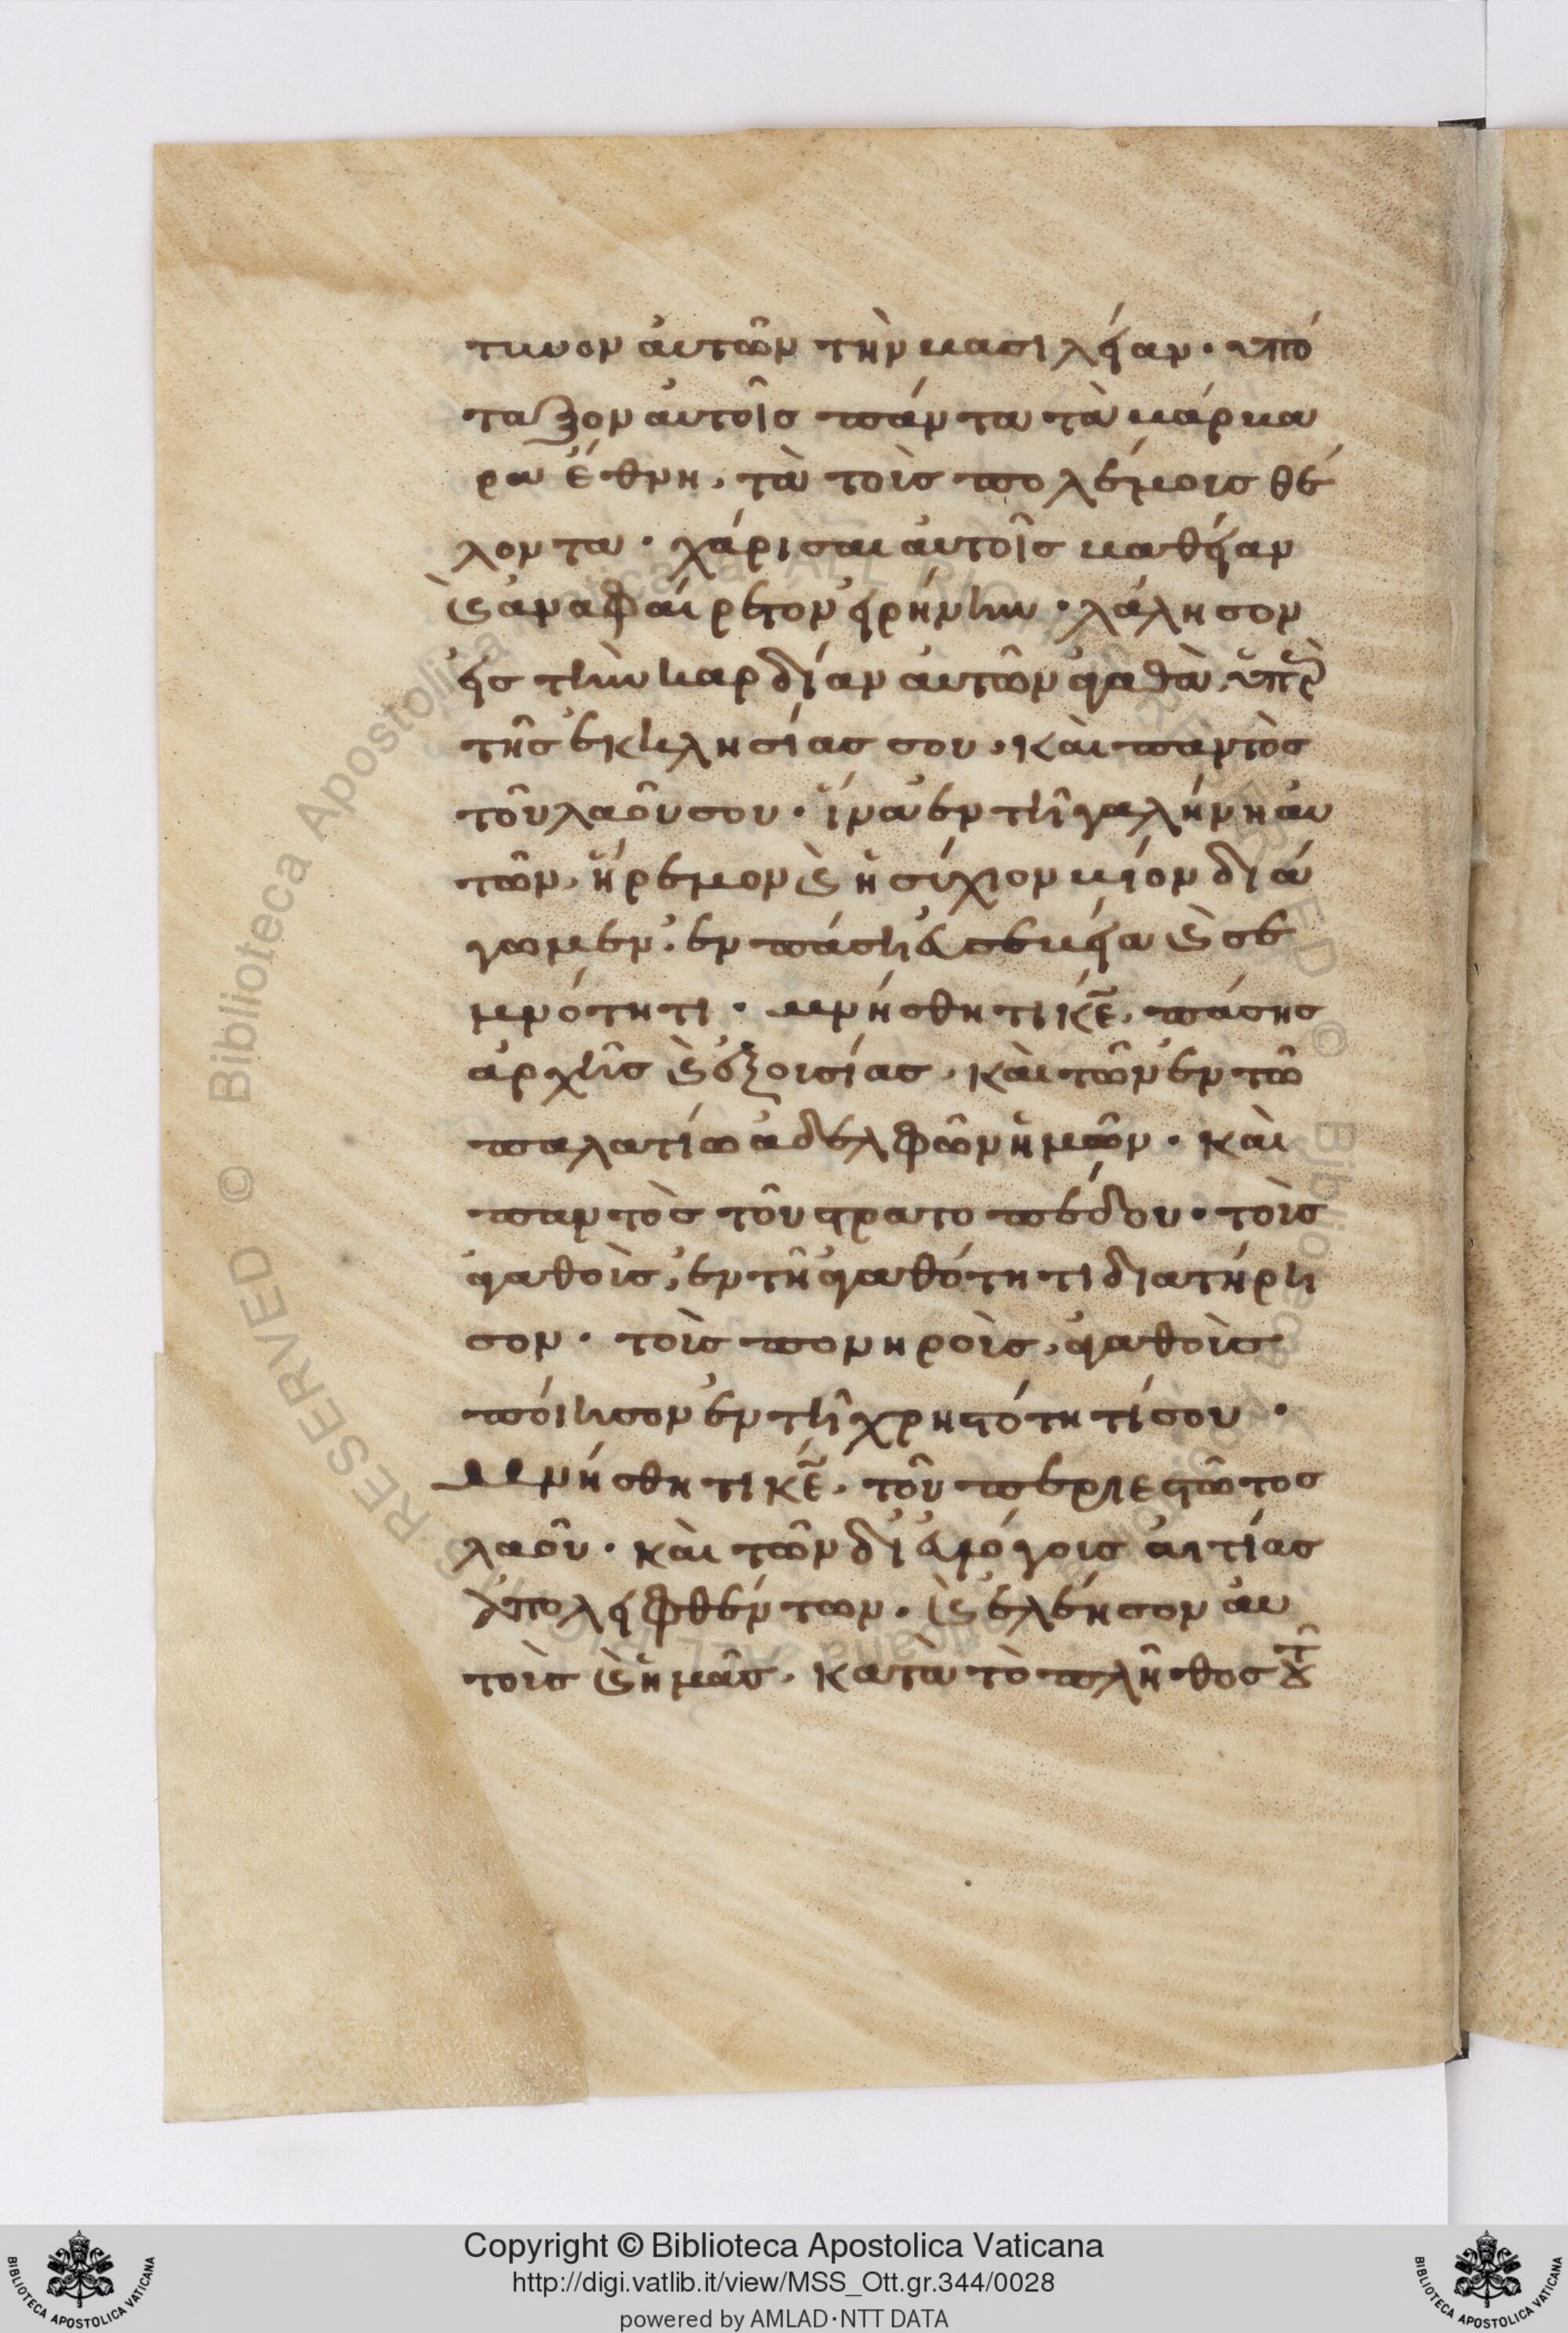 τυνον αὐτῶν τὴν βασιλείαν· ὑπό
ταξον αὐτοῖς πάντα τὰ βάρβα
ρα ἔθνη, τὰ τοῖς πολέμοις θέ
λοντα· χάρισαι αὐτοῖς βαθείαν
καὶ ἀναφαίρετον εἰρήνην· λάλησον
εἰς τὴν καρδίαν αὐτῶν ἀγαθὰ, ὑπὲρ
τῆς ἐκκλησίας σου, καὶ παντὸς
τοῦ λαοῦ σου· ἵνα ἐν τῇ γαλήνη αὐ
τῶν, ἤρεμον καὶ ἡσύχιον βίον διά
γωμεν, ἐν πάσῃ εὐσεβείᾳ καὶ σε
μνότητι· μνήσθητι κ̅ε̅, πάσης
ἀρχῆς καὶ ἐξουσίας, καὶ τῶν ἐν τῶ
παλατίω ἀδελφῶν ἡμῶν· καὶ
παντὸς τοῦ στρατοπέδου· τοὺς
ἀγαθοὺς, ἐν τῆ ἀγαθότητι διατήρη
σον· τοὺς πονηροὺς, ἀγαθοὺς
ποίησον ἐν τῇ χρηστότητί σου·
Μνήσθητι κ̅ε̅, τοῦ περιεστῶτος
λαοῦ· καὶ τῶν δι' εὐλόγους αἰτίας
ἀπολειφθέντων· καὶ ἐλέησον αὐ
τοὺς καὶ ἡμᾶς, κατὰ τὸ πλῆθος τοῦ
Copyright © Biblioteca Apostolica Vaticana
http://digi.vatlib.it/view/MSS_Ott.gr.344/0028
powered by AMLAD·NTT DATA
BIBLIOTECA APOSTOLICA VATICANA
BIBLIOTECA APOSTOLICA VATICANA
© Biblioteca Apostolica Vaticana ALL RIGHTS RESERVED
© Biblioteca Apostolica Vaticana ALL RIGHTS RESERVED